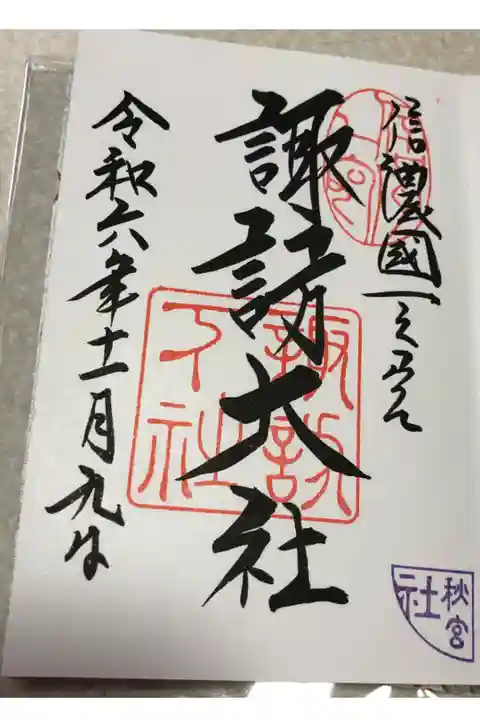 信濃國一之宮
諏訪大社
令和六年十一月九日
諏訪
下社
秋宮
社